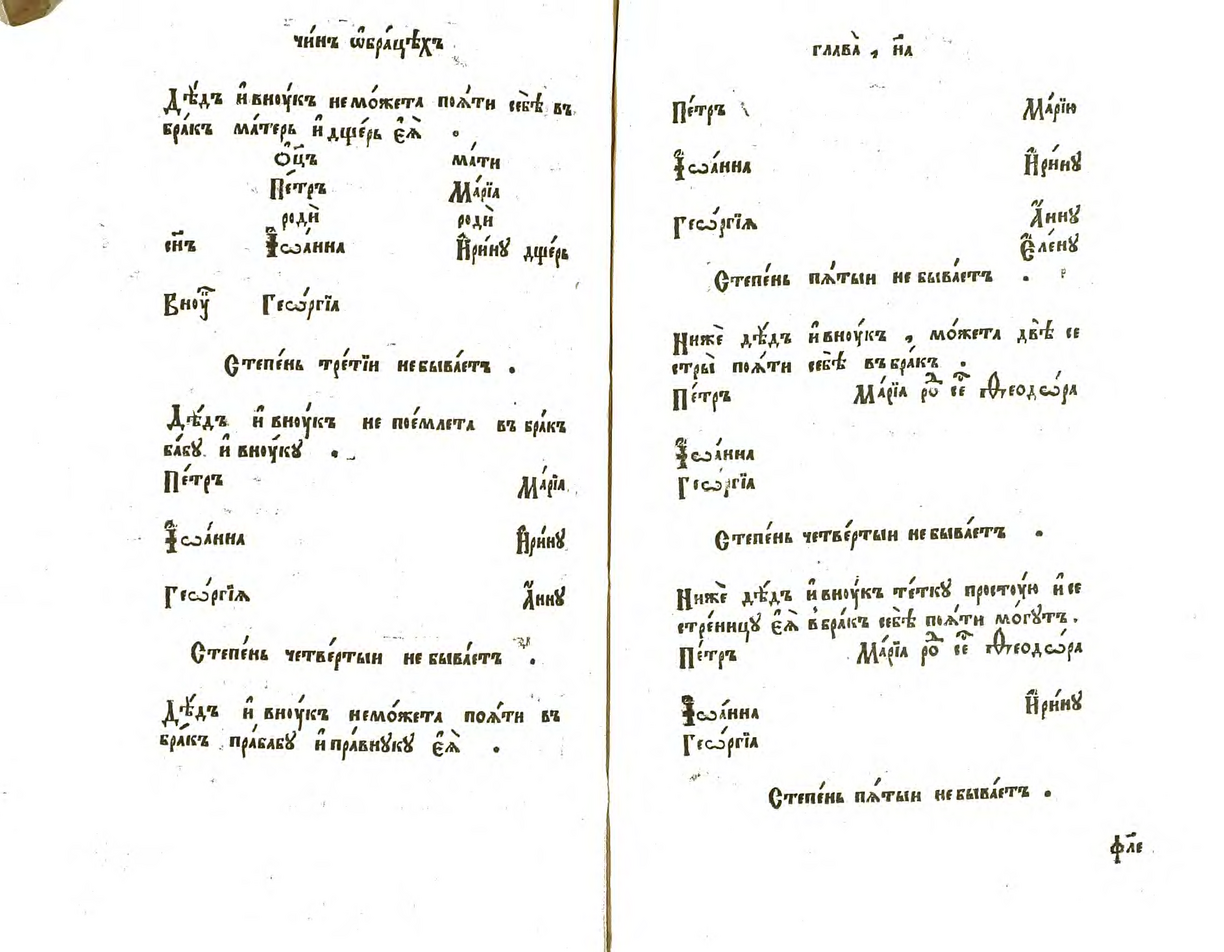 чи́нъ ѡ҆бра́цѣхъ
Дѣ́дъ и҆ вноу́къ не мо́жета поꙗ́ти себѣ̀ въ
бра́къ ма́терь и҆ дще́рь є҆ѧ̀ .
ѻ҆ц҃ъ ма́ти
Пе́тръ Ма́рїа
родѝ родѝ
сн҃ъ І҆ѡа́нна И҆ри́ну дще́рь
Вноу́ Геѡ́ргїа
Степе́нь тре́тїи не быва́етъ .
Дѣ́дъ и҆ вноу́къ не пое́млета въ бра́къ
ба́бу и҆ вноу́ку .
Пе́тръ Ма́рїа
І҆ѡа́нна И҆ри́ну
Геѡ́ргїѧ А҆́нну
Степе́нь четве́ртыи не быва́етъ .
Дѣ́дъ и҆ вноу́къ не мо́жета поѧ́ти въ
бра́къ пра́бабу и҆ пра́внуку є҆ѧ̀ .
глава̀ , н҃а
Пе́тръ Ма́рїю
І҆ѡа́нна И҆ри́ну
Геѡ́ргїѧ А҆́нну
Є҆ле́ну
Степе́нь пѧ́тыи не быва́етъ .
Нижѐ дѣ́дъ и҆ вноу́къ , мо́жета двѣ̀ се
стры̀ поѧ́ти себѣ̀ въ бра́къ .
Пе́тръ Ма́рїа роⷣ сеⷭ҇ Ѳеодѡ́ра
І҆ѡа́нна
Геѡ́ргїа
Степе́нь четве́ртыи не быва́етъ .
Нижѐ дѣ́дъ и҆ вноу́къ те́тку просто́ую и҆ се
стре́ницу є҆ѧ̀ в бра́къ себѣ̀ поѧ́ти мо́гутъ .
Пе́тръ Ма́рїа роⷣ сеⷭ҇ Ѳеодѡ́ра
І҆ѡа́нна И҆ри́ну
Геѡ́ргїа
Степе́нь пѧ́тыи не быва́етъ .
фл҃е